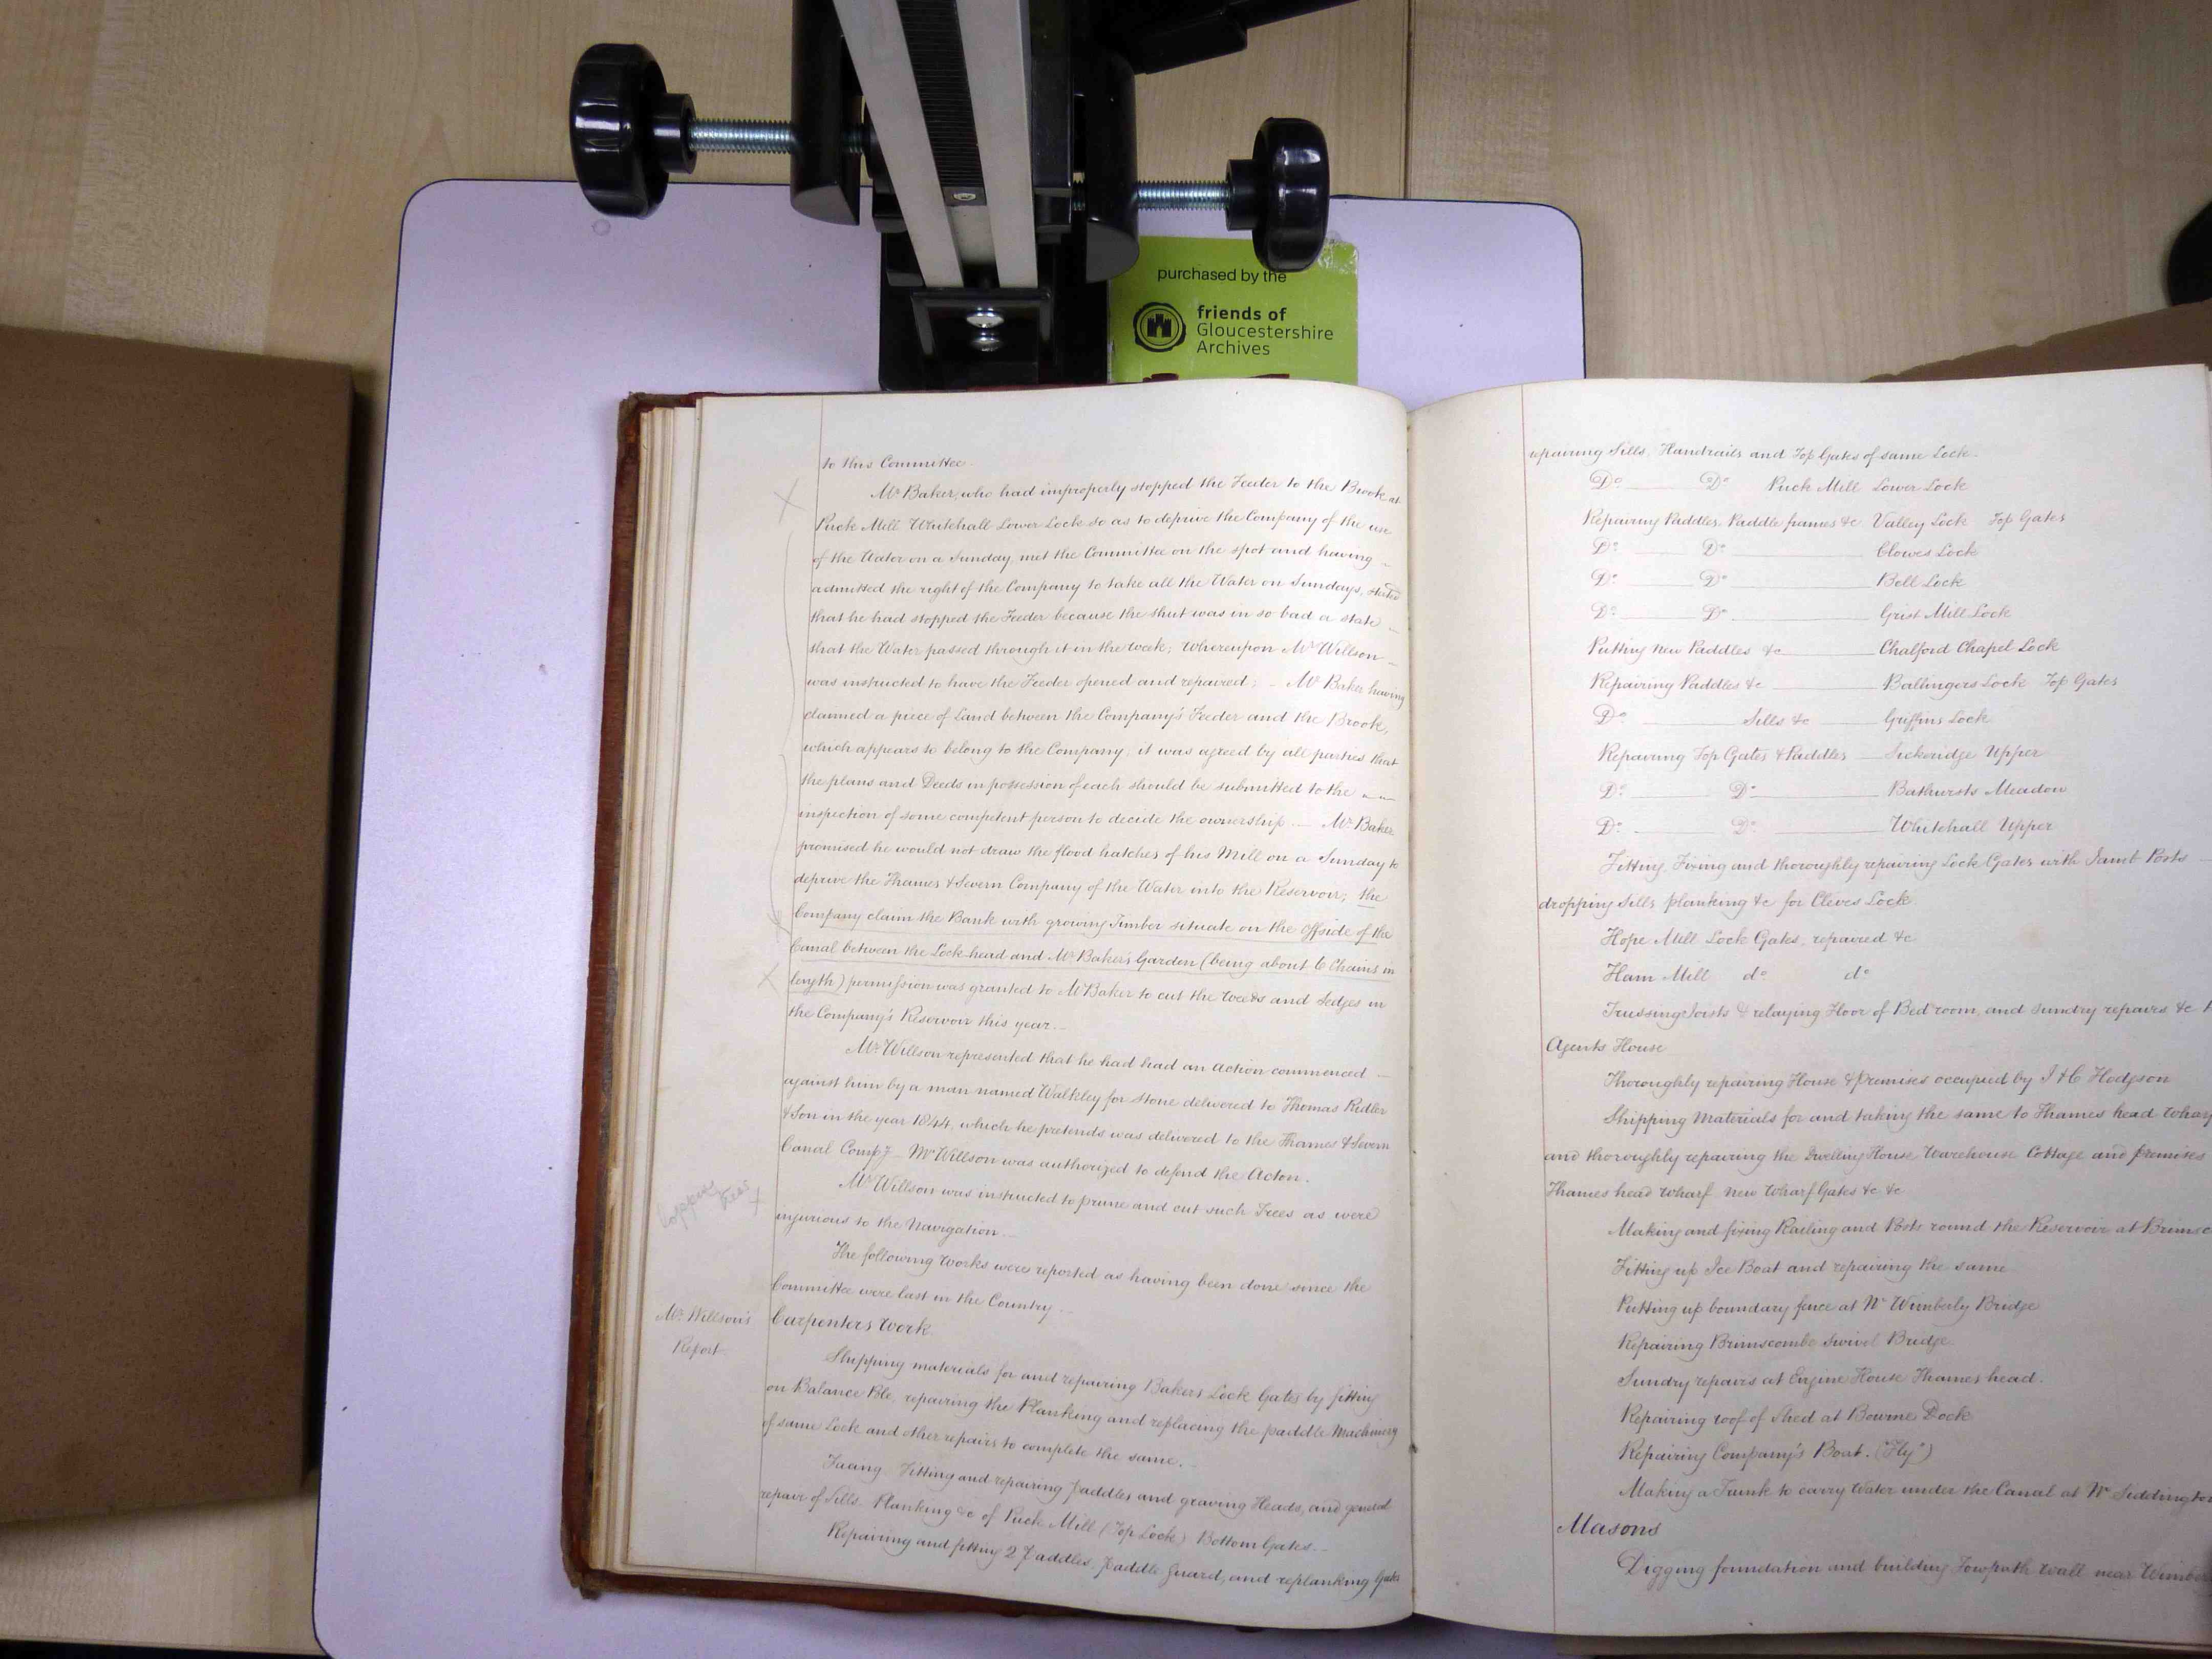 purchased by the
friends of
Gloucestershire
Archives
to this Committee.
Mr Baker, who had improperly stopped the Feeder to the Brook at
Puck Mill Whitehall Lower Lock so as to deprive the Company of the use
of the Water on a Sunday, met the Committee on the spot and having
admitted the right of the Company to take all the Water on Sundays, stated
that he had stopped the Feeder because the shut was in so bad a state
that the Water passed through it in the week; whereupon Mr Willson
was instructed to have the Feeder opened and repaired; – Mr Baker having
claimed a piece of Land between the Company's Feeder and the Brook,
which appears to belong to the Company, it was agreed by all parties that
the plans and Deeds in possession of each should be submitted to the
inspection of some competent person to decide the ownership. — Mr Baker
promised he would not draw the flood hatches of his Mill on a Sunday to
deprive the Thames & Severn Company of the Water into the Reservoir; the
Company claim the Bank with growing Timber situate on the offside of the
Canal between the Lock head and Mr Baker's Garden (being about 6 Chains in
length) permission was granted to Mr Baker to cut the weeds and sedges in
the Company's Reservoir this year.
Mr Willson represented that he had had an action commenced
against him by a man named Walkley for stone delivered to Thomas Ridler
& Son in the year 1844, which he pretends was delivered to the Thames & Severn
Canal Compy – Mr Willson was authorized to defend the Acton.
lopping
trees
Mr Willson was instructed to prune and cut such Trees as were
injurious to the Navigation.
The following Works were reported as having been done since the
Committee were last in the Country.
Mr Willson's
Report
Carpenters Work.
Shipping materials for and repairing Bakers Lock Gates by fitting
on Balance Pole, repairing the Planking and replacing the paddle Machinery
of same Lock and other repairs to complete the same.
Facing Fitting and repairing paddles and graving Heads, and general
repair of Sills Planking &c of Puck Mill (Top Lock) Bottom Gates.
Repairing and fitting 2 paddles, paddle guard, and replanking Gates
repairing Sills, Handrails and Top Gates of same Lock.
Do Do Puck Mill Lower Lock
Repairing Paddles, Paddle frames &c Valley Lock Top Gates
Do Do Clowes Lock
Do Do Bell Lock
Do Do Grist Mill Lock
Putting new Paddles &c Chalford Chapel Lock
Repairing Paddles &c Ballingers Lock Top Gates
Do Sills &c Griffins Lock
Repairing Top Gates & Paddles Sickeridge Upper
Do Do Bathursts Meadow
Do Do Whitehall Upper
Fitting, Fixing and thoroughly repairing Lock Gates with Jamb Posts
dropping Sills planking &c for Cleves Lock.
Hope Mill Lock Gates, repaired &c
Ham Mill do do
Trussing Joists & relaying Floor of Bed room, and sundry repairs &c
Agents House
Thoroughly repairing House & premises occupied by J & C Hodgson
Shipping Materials for and taking the same to Thames head wharf
and thoroughly repairing the Dwelling House Warehouse Cottage and premises
Thames head wharf new Wharf Gates &c &c
Making and fixing Railing and Posts round the Reservoir at
Fitting up Ice Boat and repairing the same
Putting up boundary fence at Nr Wimberly Bridge
Repairing Brimscombe Swivel Bridge
Sundry repairs at Engine House Thames head.
Repairing roof of Shed at Bourne Dock
Repairing Company's Boat. ("Fly")
Making a Trunk to carry Water under the Canal at Nr Siddington
Masons
Digging foundation and building Towpath wall near